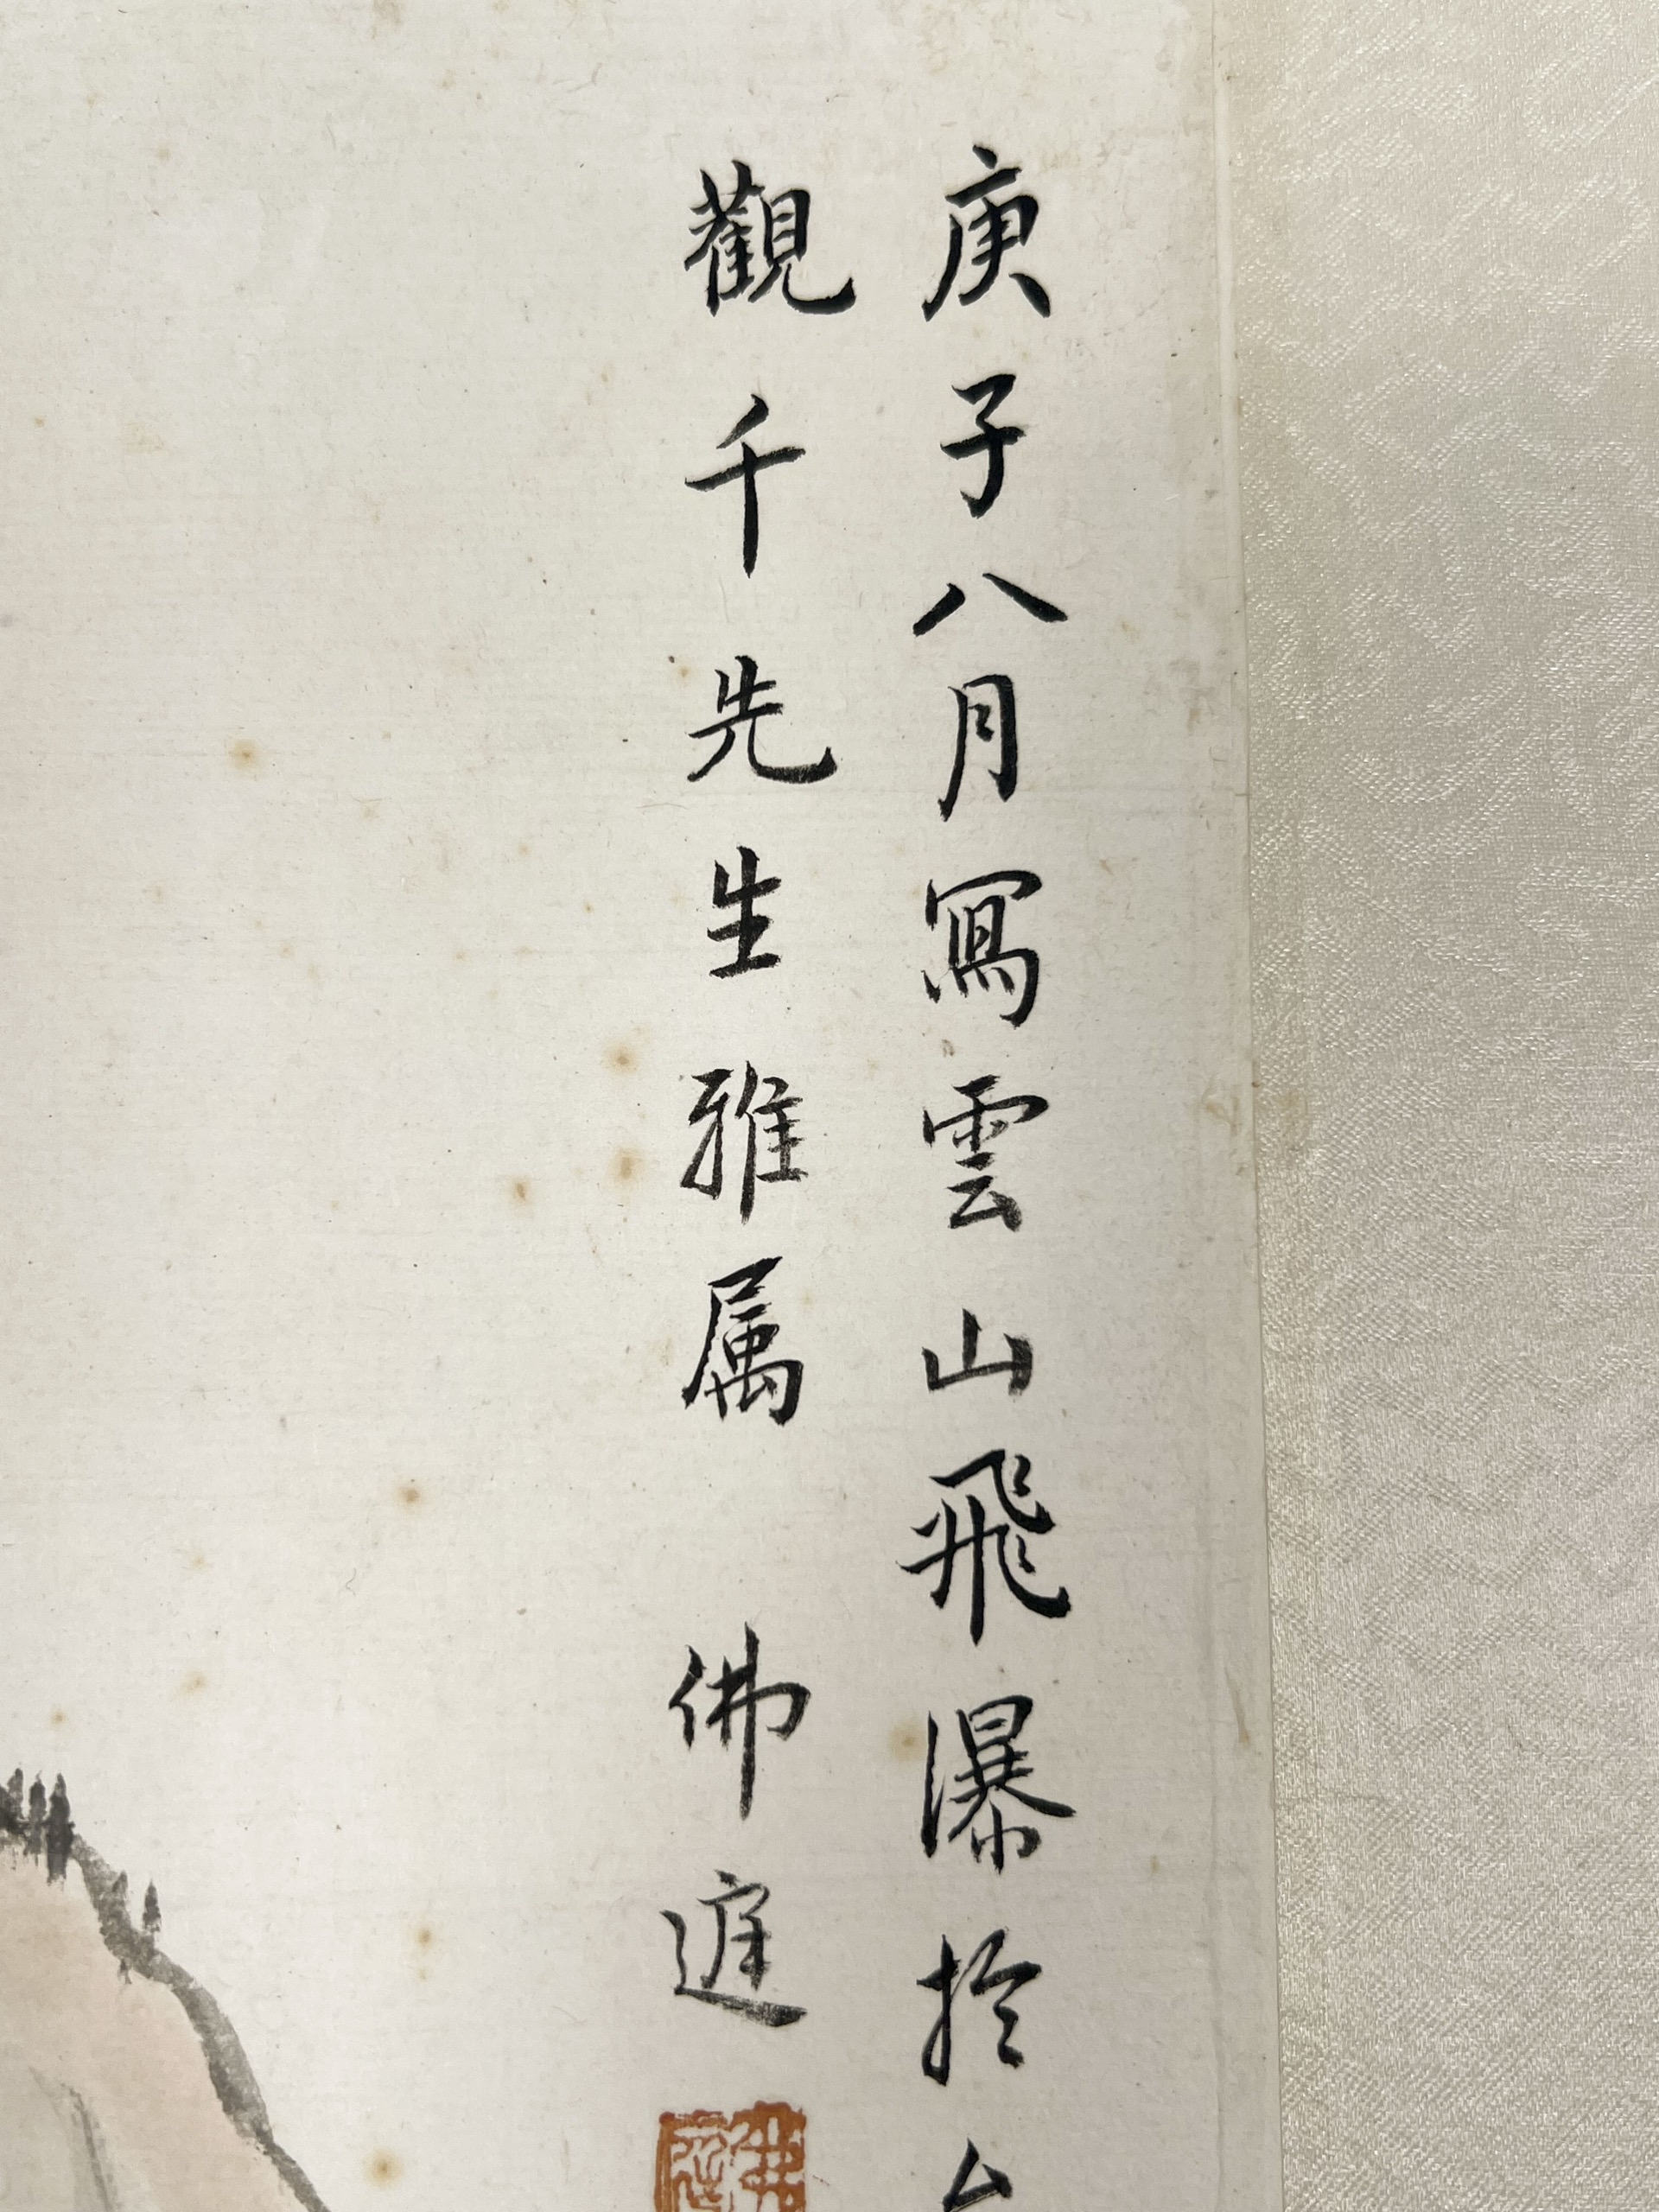 庚子八月寫雲山飛瀑於
觀千先生雅属 佛庭